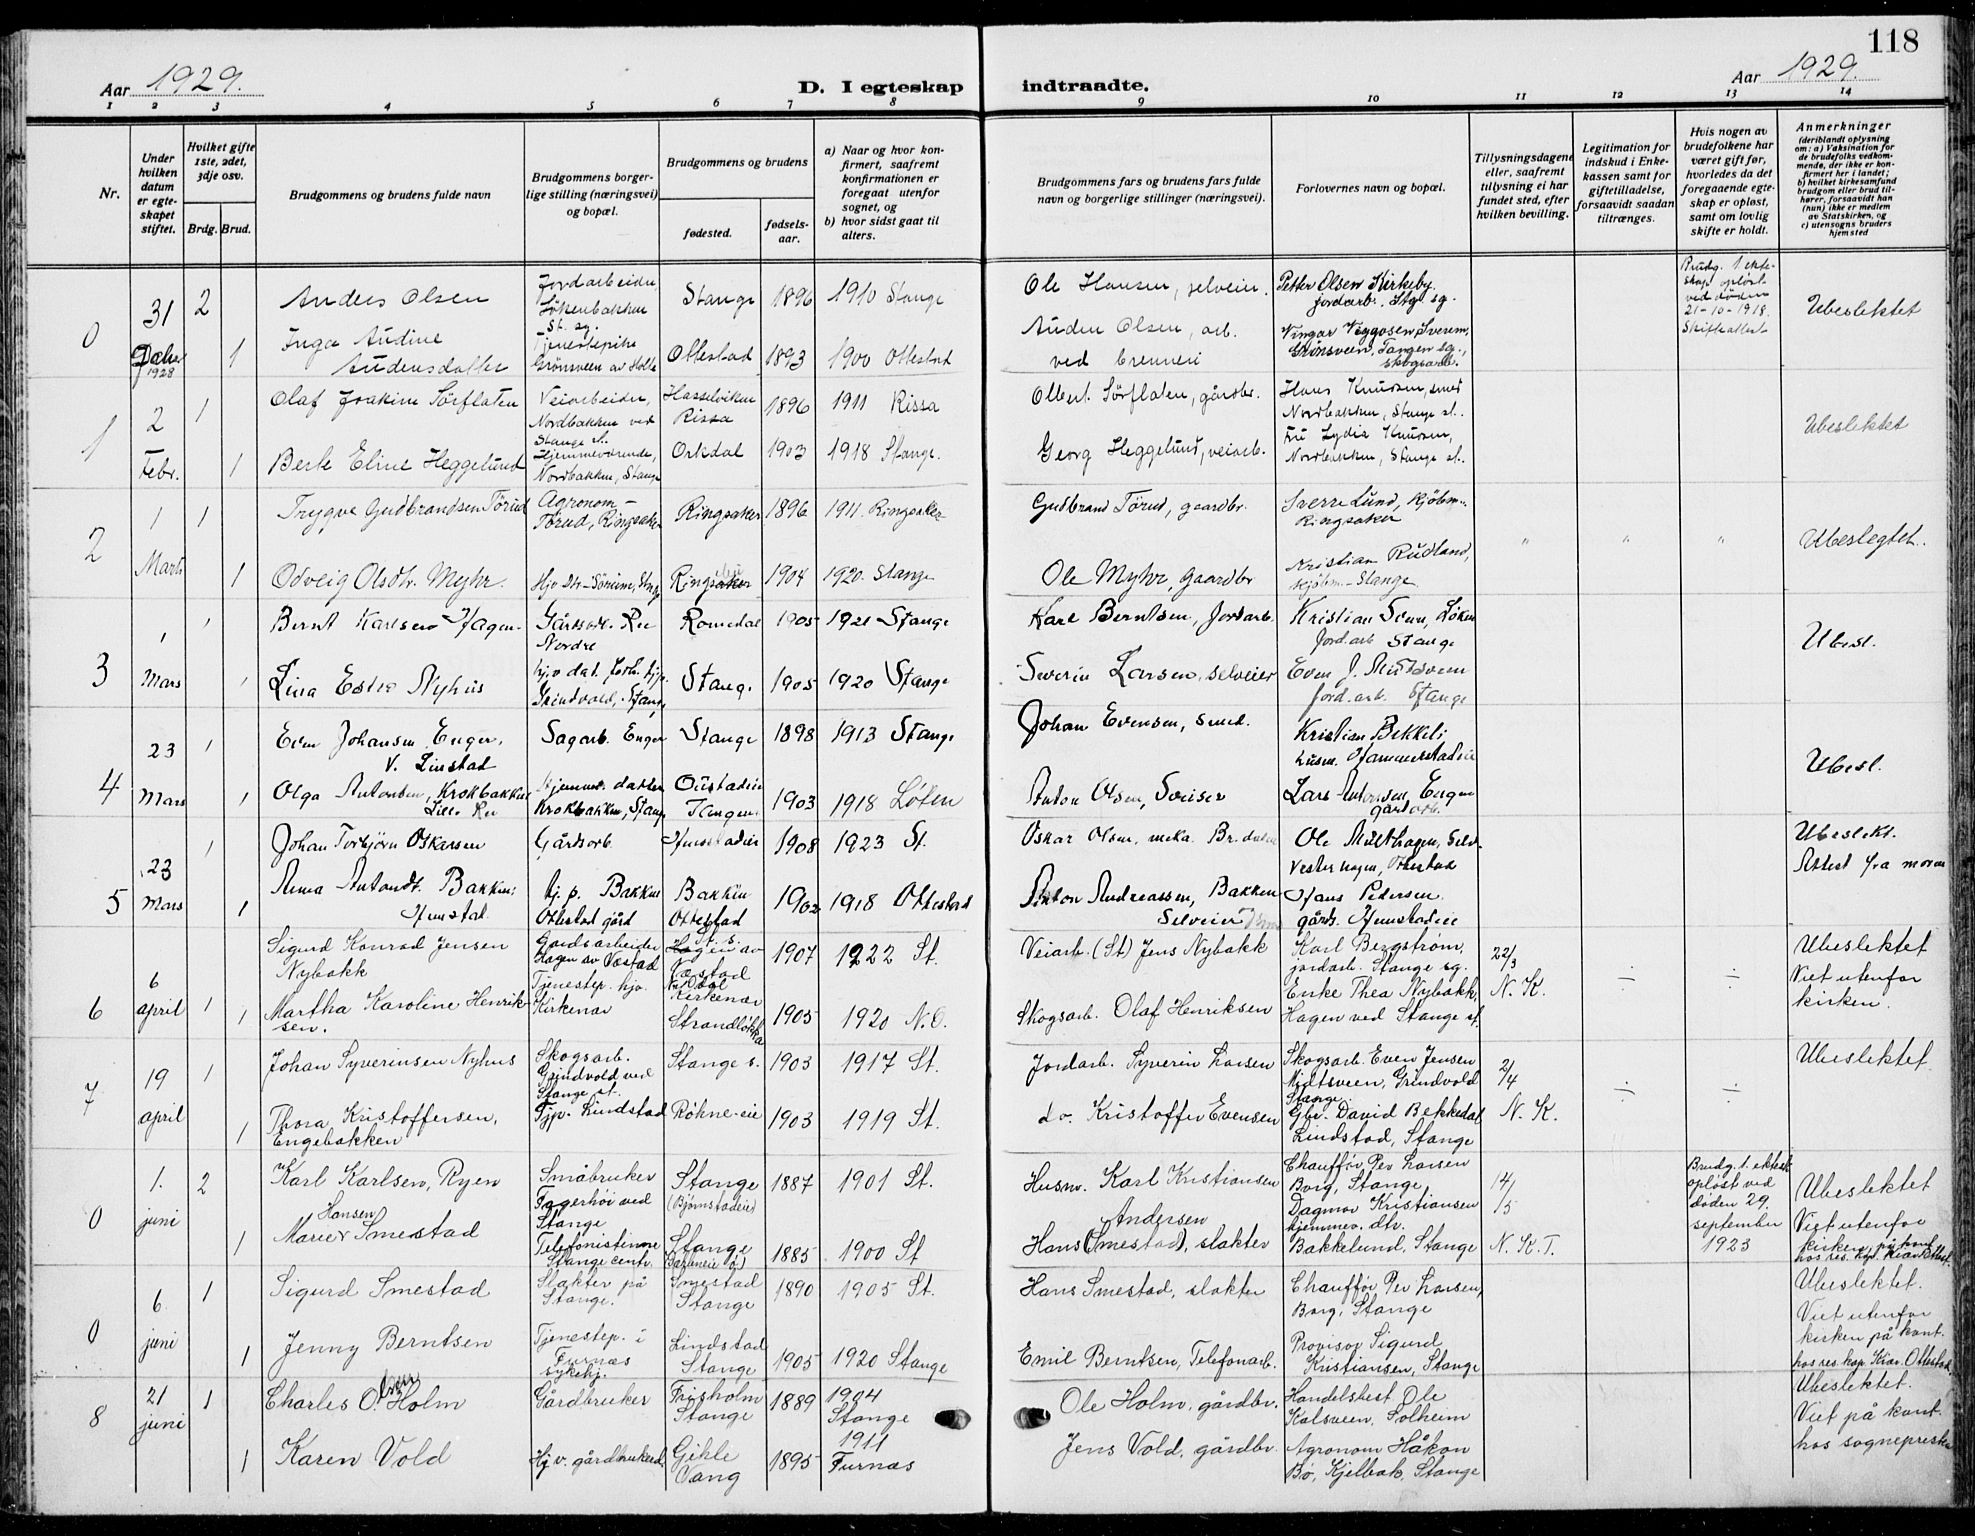 118
Aar 1929.
D. I egteskap indtraadte.
Aar 1929.
1 2 3 4 5 6 7 8 9 10 11 12 13 14
Nr.
Under hvilken datum er egteskapet stiftet.
Hvilket gifte 1ste, 2det, 3dje osv.
Brdg. Brud.
Brudgommens og brudens fulde navn
Brudgommens borgerlige stilling (næringsvei) og bopæl.
Brudgommens og brudens
fødested.
fødselsaar.
a) Naar og hvor konfirmert, saafremt konfirmationen er foregaat utenfor sognet, og
b) hvor sidst gaat til alters.
Brudgommens fars og brudens fars fulde navn og borgerlige stillinger (næringsvei).
Forlovernes navn og bopæl.
Tillysningsdagene eller, saafremt tillysning ei har fundet sted, efter hvilken bevilling.
Legitimation for indskud i Enkekassen samt for giftetilladelse, forsaavidt saadan tiltrænges.
Hvis nogen av brudefolkene har været gift før, hvorledes da det foregaaende egteskap er opløst, samt om lovlig skifte er holdt.
Anmerkninger
(deriblandt oplysning om: a) Vaksination for de brudefolks vedkommende, der ikke er konfirmert her i landet;
b) hvilket kirkesamfund brudgom eller brud tilhører, forsaavidt han (hun) ikke er medlem av Statskirken, og
c) utensogns bruders hjemsted
0 31 2 Anders Olsen Jordarbeider, Stange 1896 1910 Stange Ole Hansen, selveier. Petter Olsen Kirkeby, jordarb. Stg. sg. Brudg. 1 ekteskap opløst ved døden 21-10-1918. Skifteattest Ubeslektet
1928 1 Inga Audine Audensdatter Tjenestepike Grønsveen Ottestad 1893 1900 Ottestad Auden Olsen, arb. ved brenneri Grønsveen, Tangen sg., skogsarb.
1 2 Febr. 1 Olaf Joakim Sørflaten Veiarbeider, Nordbakken ved Stange st. Hasselviken Rissa 1896 1911 Rissa Olbert Sørflaten, gårdbr. Hans Knudsen, smed Nordbakken, Stange st. Ubeslektet
1 Berte Eline Heggelund Hjemmeværende, Nordbakken, Stange Orkedal 1903 1918 Stange. Georg Heggelund, veiarb. Fru Lydia Knudsen, Nordbakken, Stange st.
2 1 Marts 1 Trygve Gudbrandsen Tørud Agronom - Tørud, Ringsaker Ringsaker 1896 1911. Ringsaker Gudbrand Tørud, gaardbr. Sverre Lund, Kjøbm. Ringsaker " " " Ubeslegtet.
1 Odveig Olsdtr. Myhr. Ringsaker 1904 1920. Stange Ole Myhr, Gaardbr Kristian Rudland, kjøbm. - Stange
3 1 Mars 1 Bernt Karlsen Hagen Gårdsarb. Ree Nordre Romedal 1905 1921 Stange Karl Berntsen, Jordarb. Kristian Løken Jord.arb Stange Ubesl.
1 Lina Ester Nyhus Grindvold, Stange Stange 1905 1920 Stange Severin Larsen, selveier Even J. Midtsveen jord.arb. Stange
4 23 Mars 1 Even Johansen Enger, V. Linstad Sagarb. Enger Stange 1898 1913 Stange Johan Evensen, smed. Kristian Bekkeli husm. Hammerstadeie Ubesl.
1 Olga Antonsen, Krokbakken Lille Ree Hjemmev. datter Krokbakken, Stange Tangen 1903 1918 Løten Anton Olsen, Lars Andersen, Enger gårdarb.
5 23 Mars 1 Johan Torbjørn Oskarsen Gårdsarb. Hemstadeie 1908 1923 St. Oskar Olsen, Ole Vesterhagen, Ottestad Ubeslekt. Attest fra moren
1 Anna Antondt. Bakken: Hemstad. Hj. p. Bakken Ottestad gård Bakken Ottestad 1902 1918 Ottestad Anton Andreassen, Bakken Selveier Hans Pedersen gårds. Hemstadeie
6 6 april 1 Sigurd Konrad Jensen Nybakk Gårdsarbeider Hagen av Væstad Hagen av Væstad 1907 1922 St. Veiarb. (St) Jens Nybakk Karl Bergstrøm, jordarb. Stange sg. 22/3 N. K. ÷ ÷ Ubeslektet Viet utenfor kirken.
1 Martha Karoline Henriksen. Tjenestep. hjo. Kirkenær Kirkenær Strandløkka 1905 1920 N.O. Skogsarb. Olaf Henriksen Enke Thea Nybakk, Hagen ved Stange st.
7 19 april 1 Johan Syverinsen Nyhus Skogsarb. Grindvold ved Stange st. Stange s. 1903 1917 St. Jordarb. Syverin Larsen Skogsarb. Even Jensen Midtsveen, Grindvold Stange 2/4 N. K. ÷ ÷ Ubeslektet
1 Thora Kristoffersen, Engebakken Tjp. Lindstad Røhne-eie 1903 1919 St. do. Kristoffer Evensen Gbr. David Bekkedal Lindstad, Stange
0 1. juni 2 Karl Karlsen, Ryen Småbruker Fagerhøi ved Stange Stange (Bjørnstadeie) 1887 1901 St. Husm. Karl Kristiansen Chauffør Per Larsen Borg, Stange 14/5 Brudg. 1. ektesk. opløst ved døden 29. september 1923 Ubeslektet
1 Marie Hansen Smestad Telefonistinne Stange centr. Stange 1885 1900 St Andersen Hans (Smestad), slakter Dagmar Kristiansen hjemmev. dtr. Bakkelund, Stange N. K. T. Viet utenfor kirken på kont. hos res. kap. Kiær Ottest.
0 6. juni 1 Sigurd Smestad Slakter på Stange. Smestad Stange 1890 1905 St. Hans Smestad, slakter Chauffør Per Larsen, Borg, Stange Ubeslektet.
1 Jenny Berntsen Tjenestep. i Furnæs sykehj. Lindstad Stange 1905 1920 Stange Emil Berntsen, Telefonarb. Provisor Sigurd Kristiansen, Stange Viet utenfor kirken på kont. hos res. kap. Kiær, Ottestad.
8 21 juni 1 Charles Olsen Holm Gårdbruker Frisholm Stange 1889 1904 Stange Ole Holm, gårdbr. Handelsbest Ole Kalsveen, Solheim Ubeslektet.
1 Karen Vold Hj v. gårdbrukerd. Gihle Vang 1895 1911 Furnæs Jens Vold, gårdbr. Agronom Håkon Bø, Kjelbak, Stange Viet på kont. hos sognepresten